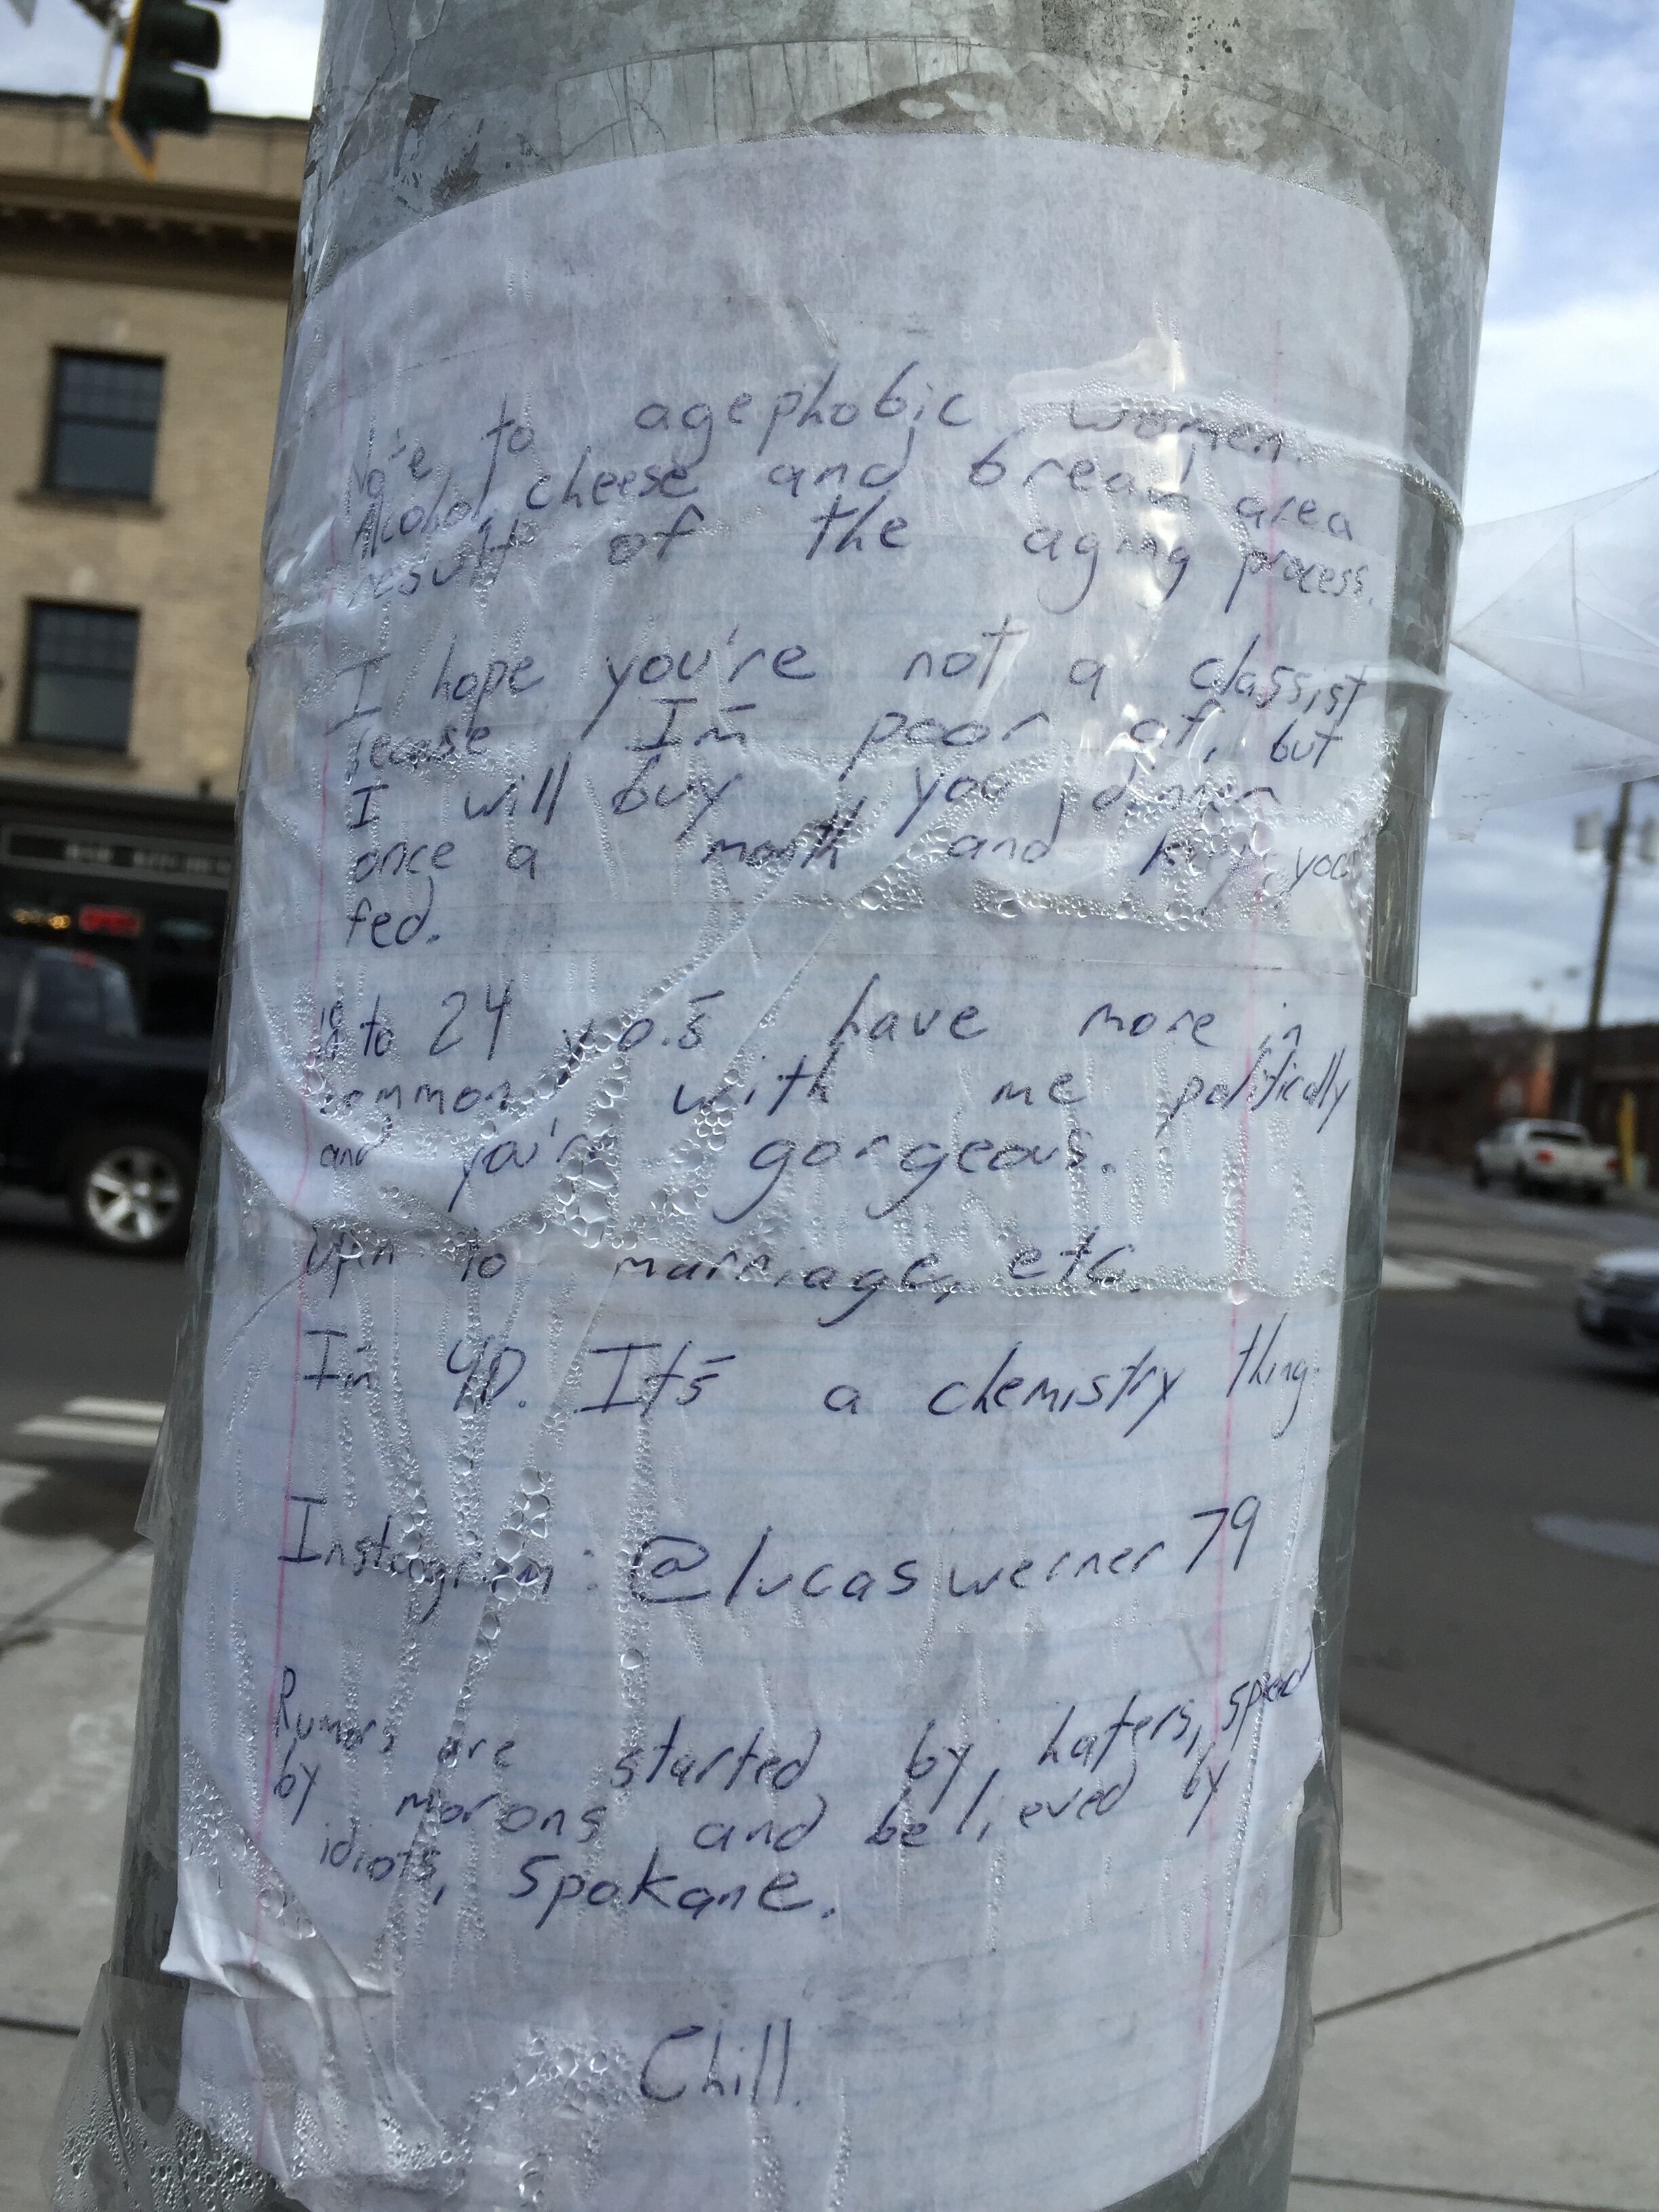 Note to agephobic women.
Alcohol, cheese and bread area
result of the aging process.
I hope you're not a classist
becase I'm poor af, but
I will buy you dinner
once a month and keep you
fed.
18 to 24 y.o.'s have more in
common with me politically
and you're gorgeous.
Open to marriage, etc.
I'm 40. It's a chemistry thing.
Instagram: @lucaswerner79
Rumors are started by haters, spread
by morons and believed by
idiots, Spokane.
Chill.
OPEN